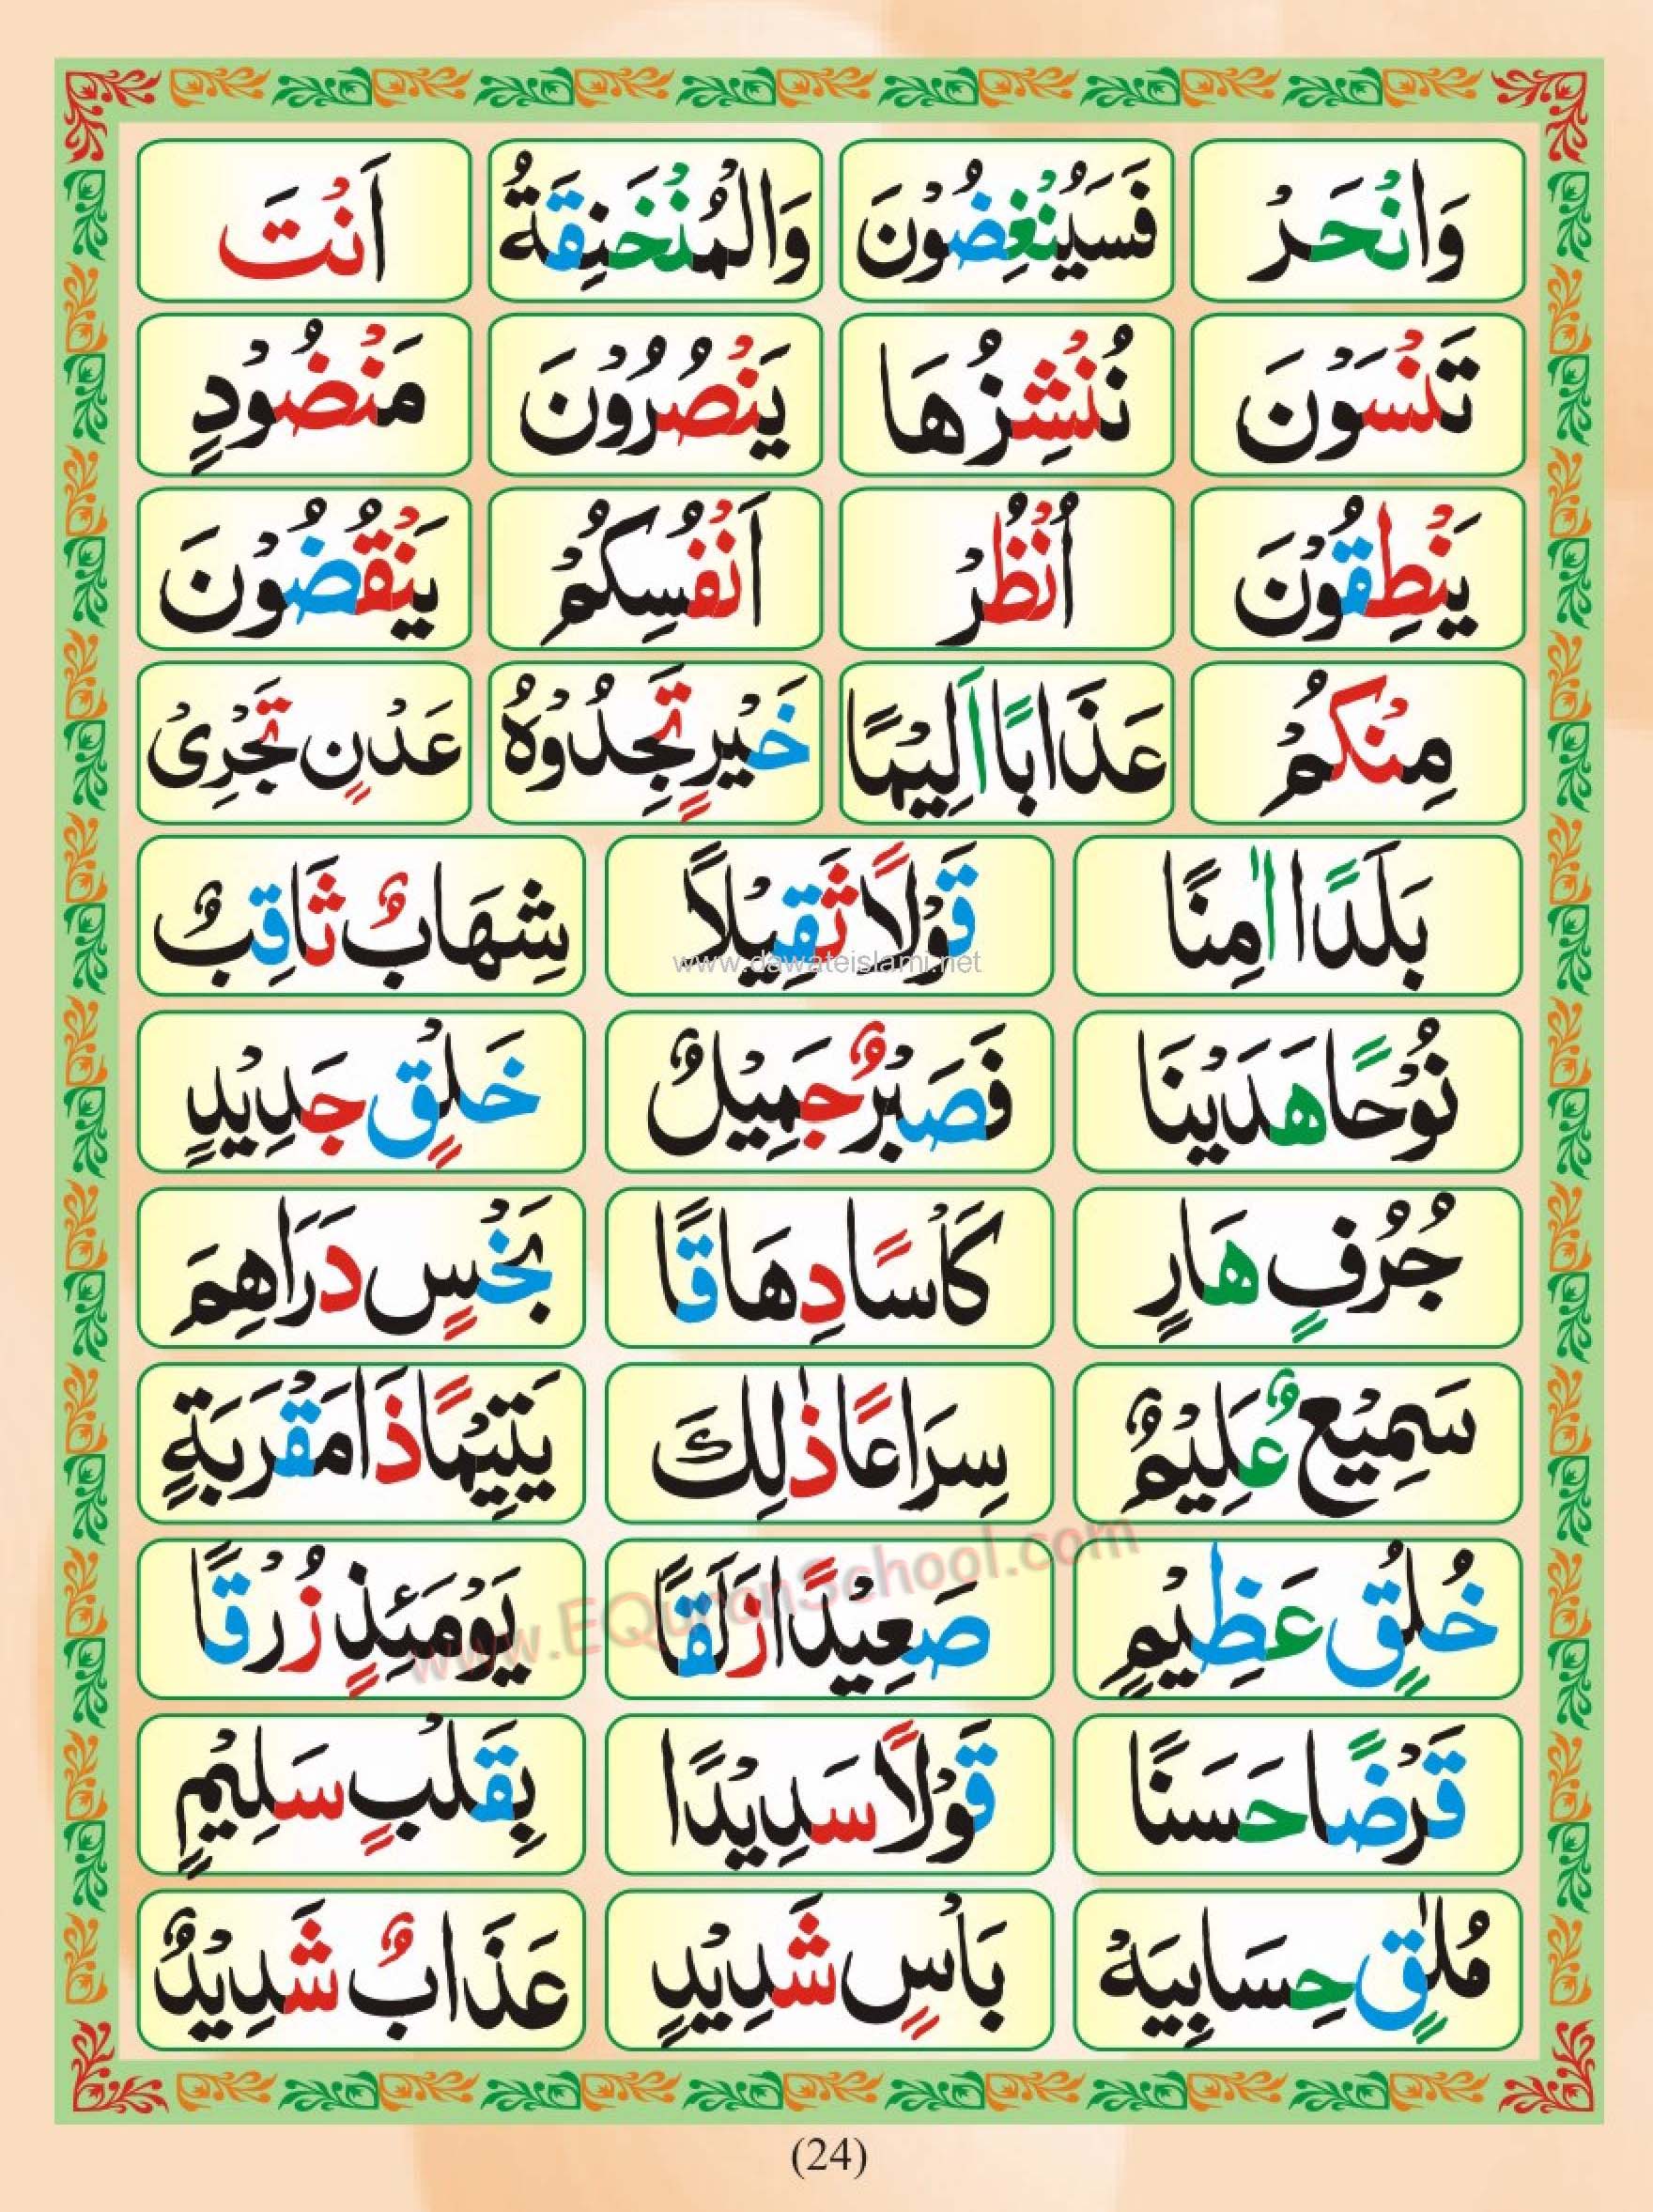 وَانْحَرْ فَسَيُنْغِضُوْنَ وَالْمُنْخَنِقَةُ اَنْتَ
تَنْسَوْنَ نُنْشِزُهَا يَنْصُرُوْنَ مَنْضُوْدٍ
يَنْطِقُوْنَ اُنْظُرْ اَنْفُسِكُمْ يَنْقُضُوْنَ
مِنْكُمْ عَذَابًا اَلِيْمًا خَيْرٍ تَجِدُوْهُ عَدْنٍ تَجْرِىْ
بَلَدًا اٰمِنًا قَوْلًا ثَقِيْلًا شِهَابٌ ثَاقِبٌ
www.dawateislami.net
نُوْحًا هَدَيْنَا فَصَبْرٌ جَمِيْلٌ خَلْقٍ جَدِيْدٍ
جُرُفٍ هَارٍ كَاْسًا دِهَاقًا بَخْسٍ دَرَاهِمَ
سَمِيْعٌ عَلِيْمٌ سِرَاعًا ذٰلِكَ يَتِيْمًا ذَا مَقْرَبَةٍ
www.EQuranSchool.com
خُلُقٍ عَظِيْمٍ صَعِيْدًا زَلَقًا يَوْمَئِذٍ زُرْقًا
قَرْضًا حَسَنًا قَوْلًا سَدِيْدًا بِقَلْبٍ سَلِيْمٍ
مُلٰقٍ حِسَابِيَهْ بَاْسٍ شَدِيْدٍ عَذَابٌ شَدِيْدٌ
(24)